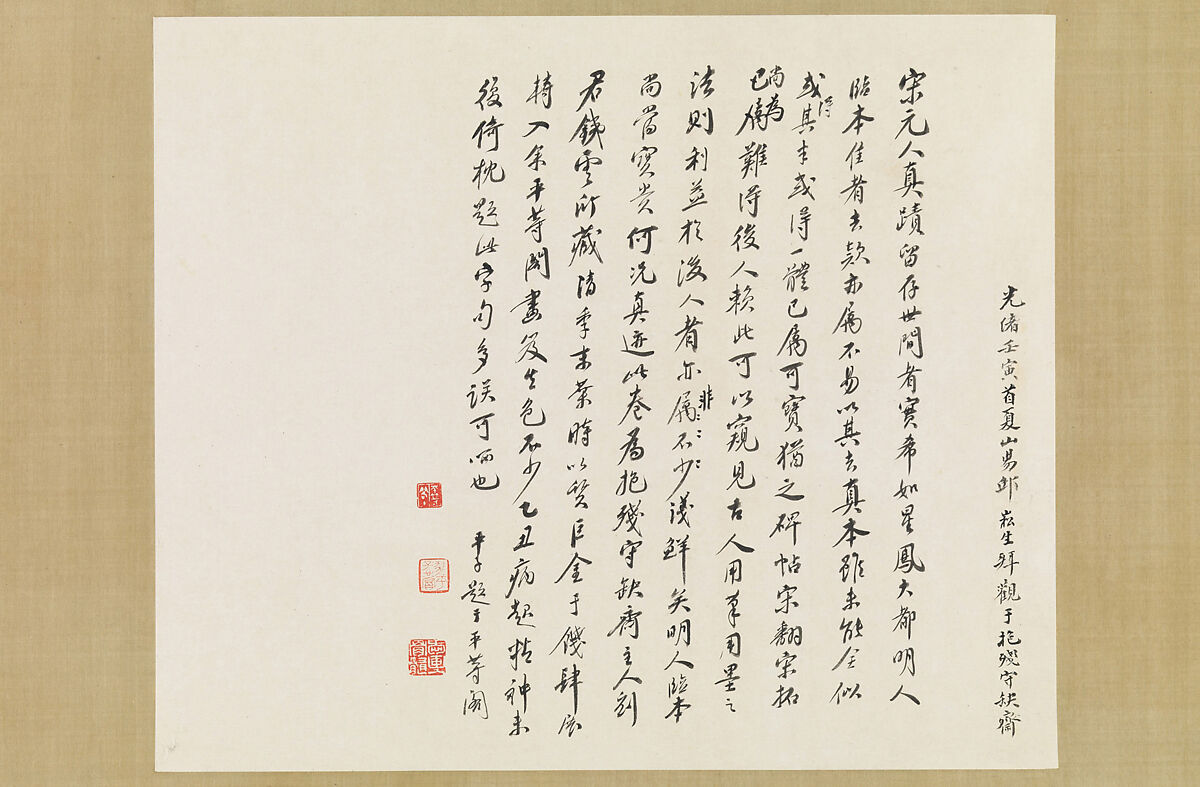 光緒壬寅首夏山陽邱崧生拜觀于抱殘守缺齋
宋元人真蹟留存世間者實希如星鳳大都明人
臨本佳者去款亦屬不易以其去真本雖未能全似
或得其半或得一體已屬可寶猶之碑帖宋翻宋拓
尚為
已屬難得後人賴此可以窺見古人用筆用墨之
法則利益於後人者亦屬非不少淺鮮矣明人臨本
尚當寶貴何况真迹此卷為抱殘守缺齋主人劉
君鐵雲所藏清季末葉時以質巨金于錢肆展
轉入余平等閣畫笈生色不少乙丑病起精神未
後倚枕題此字句多誤可哂也
平子題于平等閣